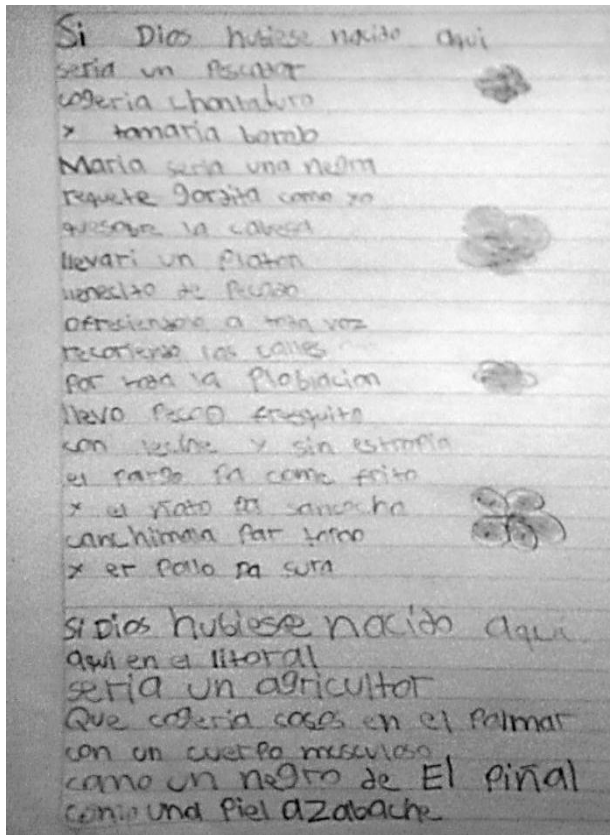 Si Dios hubiese nacido aqui
seria un Pescador
cogeria chontaduro
y tamaria borojo
Maria seria una negra
requete gordita como yo
quesobre la cabesa
llevari un Platon
llenecito de Pecado
ofresiendolo a toda voz
recorriendo las calles
Por toda la Plobiacion
llevo Pecao fresquito
con leche y sin
el Pargo Pa come frito
y el ñato Pa sancocho
canchimala Par tapao
y er Palo Pa sura
Si Dios hubiese nacido aqui
aqui en el litoral
seria un agricultor
Que cogeria cosos en el Palmar
con un cuerpo musculoso
como un negro de El Piñal
como una Piel azabache